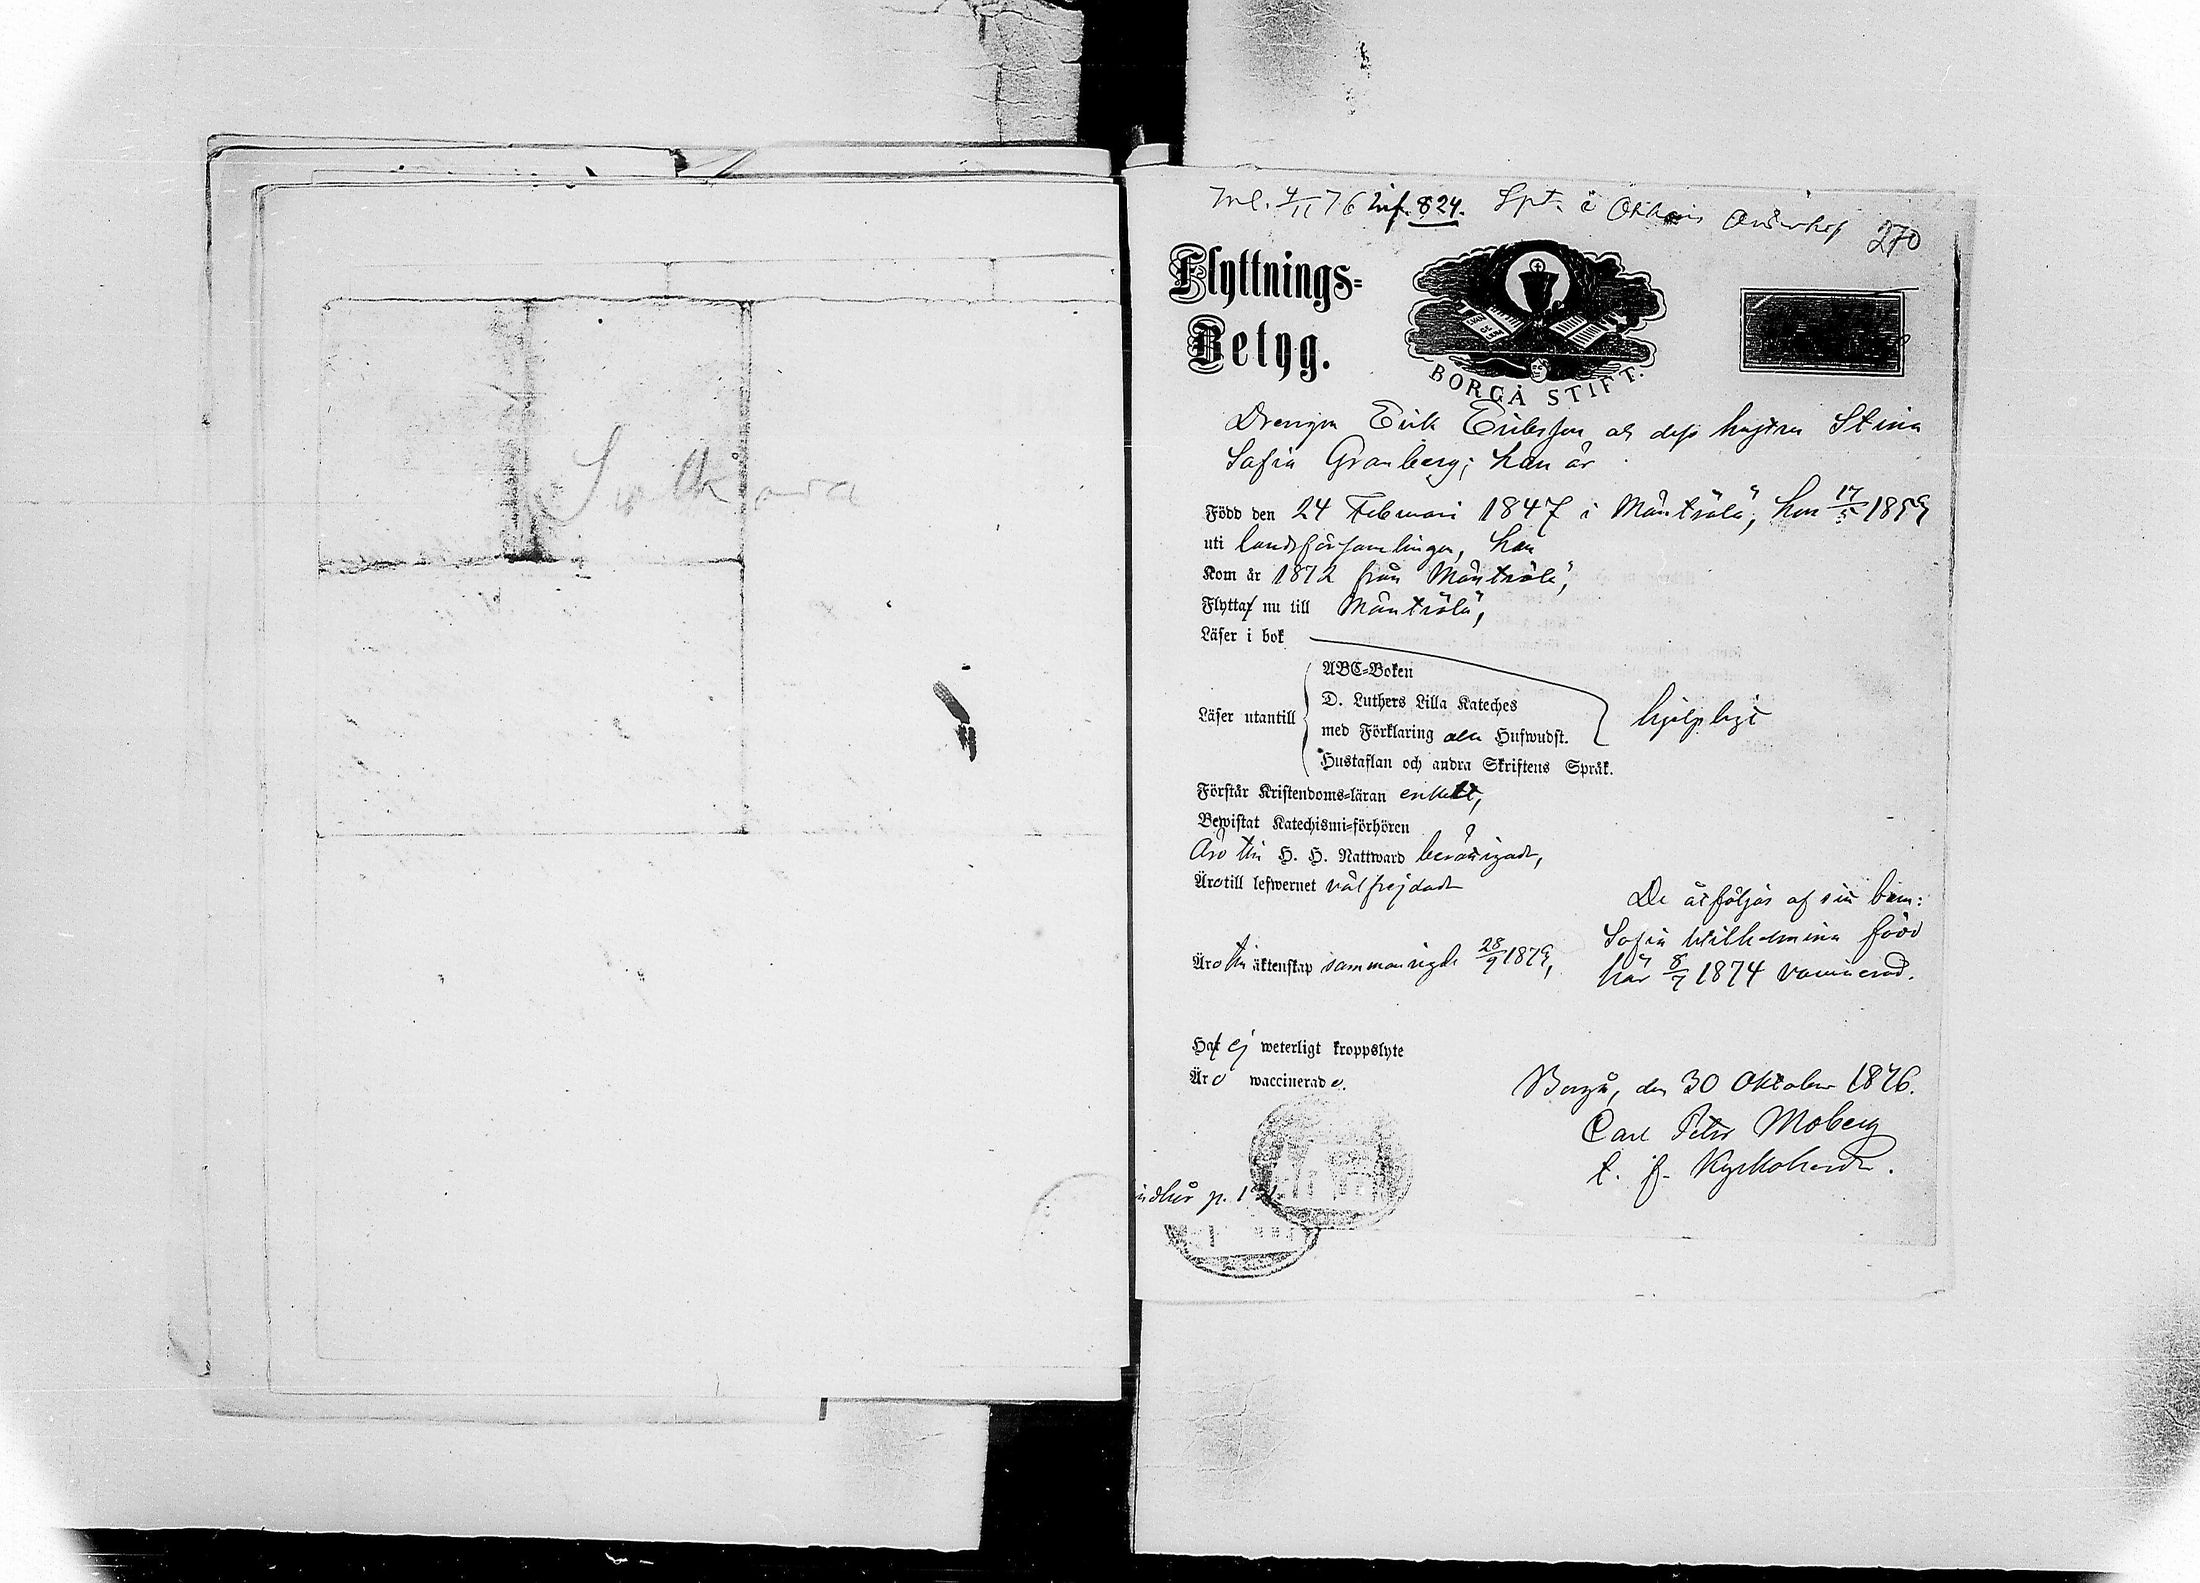 Inl. 4/11 76 Inf. 824. Spt. i
270
Flyttnings-
Betyg.
BORGÅ STIFT.
Drengen Erik Eriksson och dess hustru Stina
Sofia Granberg; han är
Född den 24 Februari 1847 i Mäntsälä, hon 17/5 1859
uti landsförsamlingen, han
Kom år 1872 från Mäntsälä,
Flytta nu till Mäntsälä,
Läser i bok
Läser utantill
ABC-Boken
D. Luthers Lilla Kateches
med Förklaring Hufwudst.
Hustaflan och andra Skriftens Språk.
hjelpligt
Förstår Kristendoms-läran enkelt,
Bewistat Katechismi-förhören
Äro till H. H. Nattward berättigade,
Äro till lefwernet välfrejdade
De åtföljas af sin barn:
Sofia Wilhelmina född
här 8/7 1874 vaccinerad.
Äro till äktenskap sammanvigde 28/9 1879,
Haf ej weterligt kroppslyte
Äro waccinerade.
Borgå, den 30 Oktober 1876.
Carl Peter Moberg
t. f. Kyrkoherde.